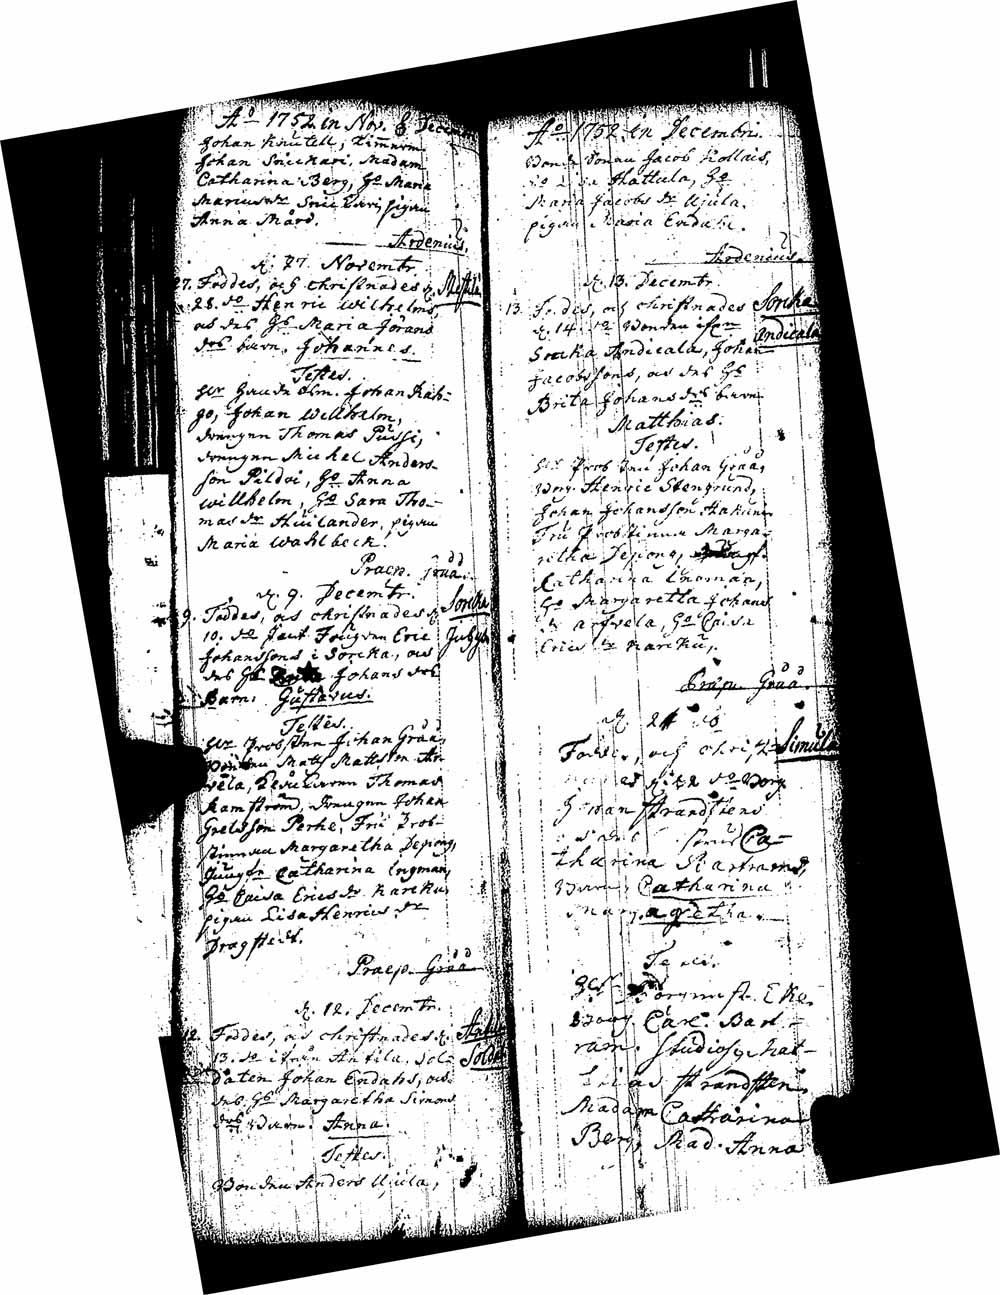 Ao 1752 in Nov. & Decem
Johan Knutell, Timmerm
Johan Snickari, Madam
Catharina Berg, Ho Maria
Marcus dr Snickari, pigan
Anna Mård.
Ardenius.
d. 27 Novembr.
27. Föddes, och christnades d.
28. do Henric Wilhelms,
ås des Ho Maria Jörans
drs barn, Johannes.
Testes.
Johan Kah-
go, Johan Willhelm,
Drengen Thomas Pussi,
Drengen Michel Anders-
son Pildoi, Ho Anna
Willhelm, Ho Sara Tho-
mas dr Huilander, pigan
Maria Wahlbeck.
Praep. Gråå.
d. 9. Decembr.
9. Föddes, ås christnades d. Sorcka
10. do Eric
Johanssons i Sorcka, ås
des Ho Johans drs
Barn: Gustavus.
Testes.
Hr Probsten Johan Gråå,
Matts Mattsson
Thomas
Ramström, Drengen Johan
Grelsson Perhe, Fru Prob-
stinnan Margaretha Depong,
Jungfr Catharina Ingman,
Ho Caisa Erics dr Karcku,
pigan Lisa Henrics dr
Dragstedt.
Praep. Gråå
d. 12. Decembr.
12. Föddes, ås christnades d. Antila
13. do ifrån Antila Sol- Soldat
daten Johan Endahs, ås
des Ho Margaretha Simons
drs Barn. Anna.
Testes.
Bonden Anders Ujula,
Ao 1752 in Decembri.
Bonde Sonen Jacob Kollais,
Hattula, Ho
Maria Jacobs dr Ujula.
pigan Maria Endahl.
Ardenius.
d. 13. Decembr.
13. Föddes, ås christnades Sorcka
d. 14 do Bonden ifrn Andicala
Sorcka Andicala, Johan
Jacobssons, ås des Ho
Brita Johans drs barn
Matthias.
Testes.
Hr Probsten Johan Gråå,
Borg. Henric Stengrund,
Johan Johansson Hakuni
Fru Probstinnan Marga-
retha Depong,
Catharina Ingman,
Ho Margaretha Johans
dr Arfwela, Ho Caisa
Erics dr Karcku,.
Praep. Gråå.
d. 21 do
Föddes, och christ- Simula
d. 22 do Borg
Johan Strandstens
Ca-
tharina Bartrams,
Barn, Catharina
Margaretha.
Testes.
Eke-
Borg. Carl Bart-
ram. Studiosq Mat-
thias Strandsten,
Madam Catharina
Berg, Mad. Anna